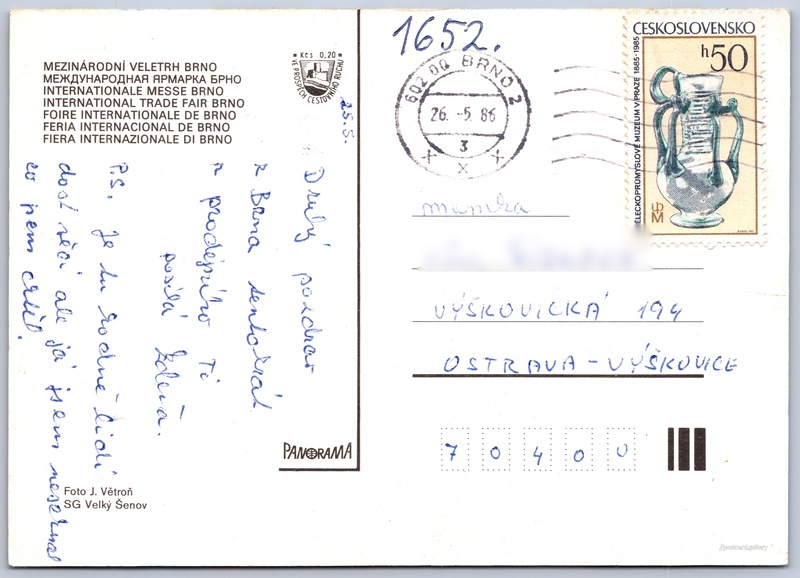 MEZINÁRODNÍ VELETRH BRNO
МЕЖДУНАРОДНАЯ ЯРМАРКА БРНО
INTERNATIONALE MESSE BRNO
INTERNATIONAL TRADE FAIR BRNO
FOIRE INTERNATIONALE DE BRNO
FERIA INTERNACIONAL DE BRNO
FIERA INTERNAZIONALE DI BRNO
Kčs 0,20
VE PROSPĚCH CESTOVNÍHO RUCHU
25.5.
Druhý pozdrav
z Brna tentokrát
z prodejního Ti
posílá Zdena.
P.S. Je tu hodně lidí
dost věcí ale já jsem nesehnal
co jsem chtěl.
Foto J. Větroň
SG Velký Šenov
PANORAMA
1652.
602 00 BRNO 2
26. -5. 86
3
ČESKOSLOVENSKO
h 50
UMĚLECKOPRŮMYSLOVÉ MUZEUM V PRAZE 1885-1985
UPM
VÝŠKOVICKÁ 194
OSTRAVA-VÝŠKOVICE
7 0 4 0 0